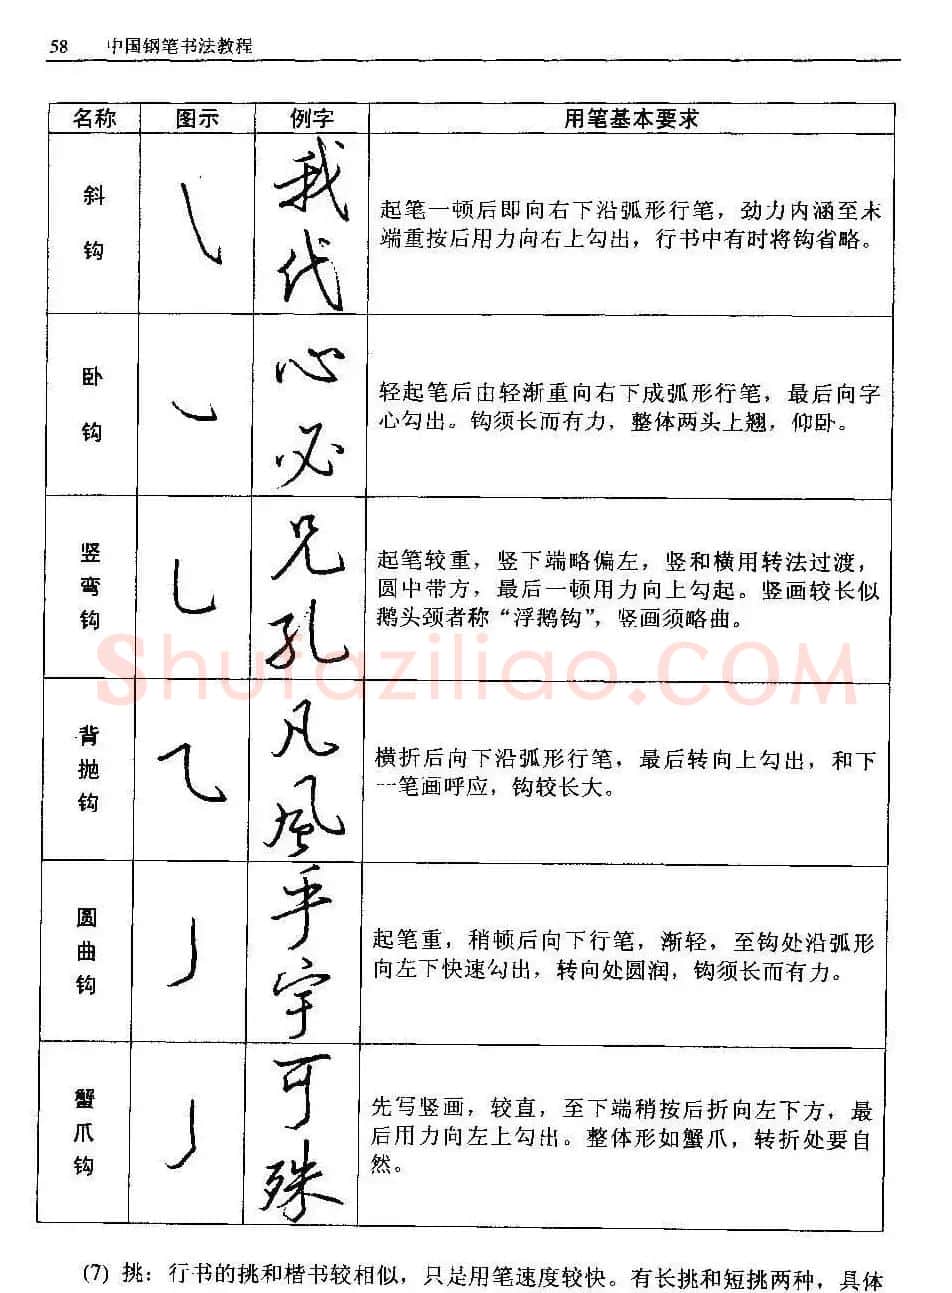 58 中国钢笔书法教程
名称 图示 例字 用笔基本要求
斜钩
我
代
起笔一顿后即向右下沿弧形行笔，劲力内涵至末
端重按后用力向右上勾出，行书中有时将钩省略。
卧钩
心
必
轻起笔后由轻渐重向右下成弧形行笔，最后向字
心勾出。钩须长而有力，整体两头上翘，仰卧。
竖弯钩
兄
孔
起笔较重，竖下端略偏左，竖和横用转法过渡，
圆中带方，最后一顿用力向上勾起。竖画较长似
鹅头颈者称“浮鹅钩”，竖画须略曲。
Shufaziliao.COM
背抛钩
凡
風
横折后向下沿弧形行笔，最后转向上勾出，和下
一笔画呼应，钩较长大。
圆曲钩
乎
宇
起笔重，稍顿后向下行笔，渐轻，至钩处沿弧形
向左下快速勾出，转向处圆润，钩须长而有力。
蟹爪钩
可
殊
先写竖画，较直，至下端稍按后折向左下方，最
后用力向左上勾出。整体形如蟹爪，转折处要自
然。
(7) 挑：行书的挑和楷书较相似，只是用笔速度较快。有长挑和短挑两种，具体